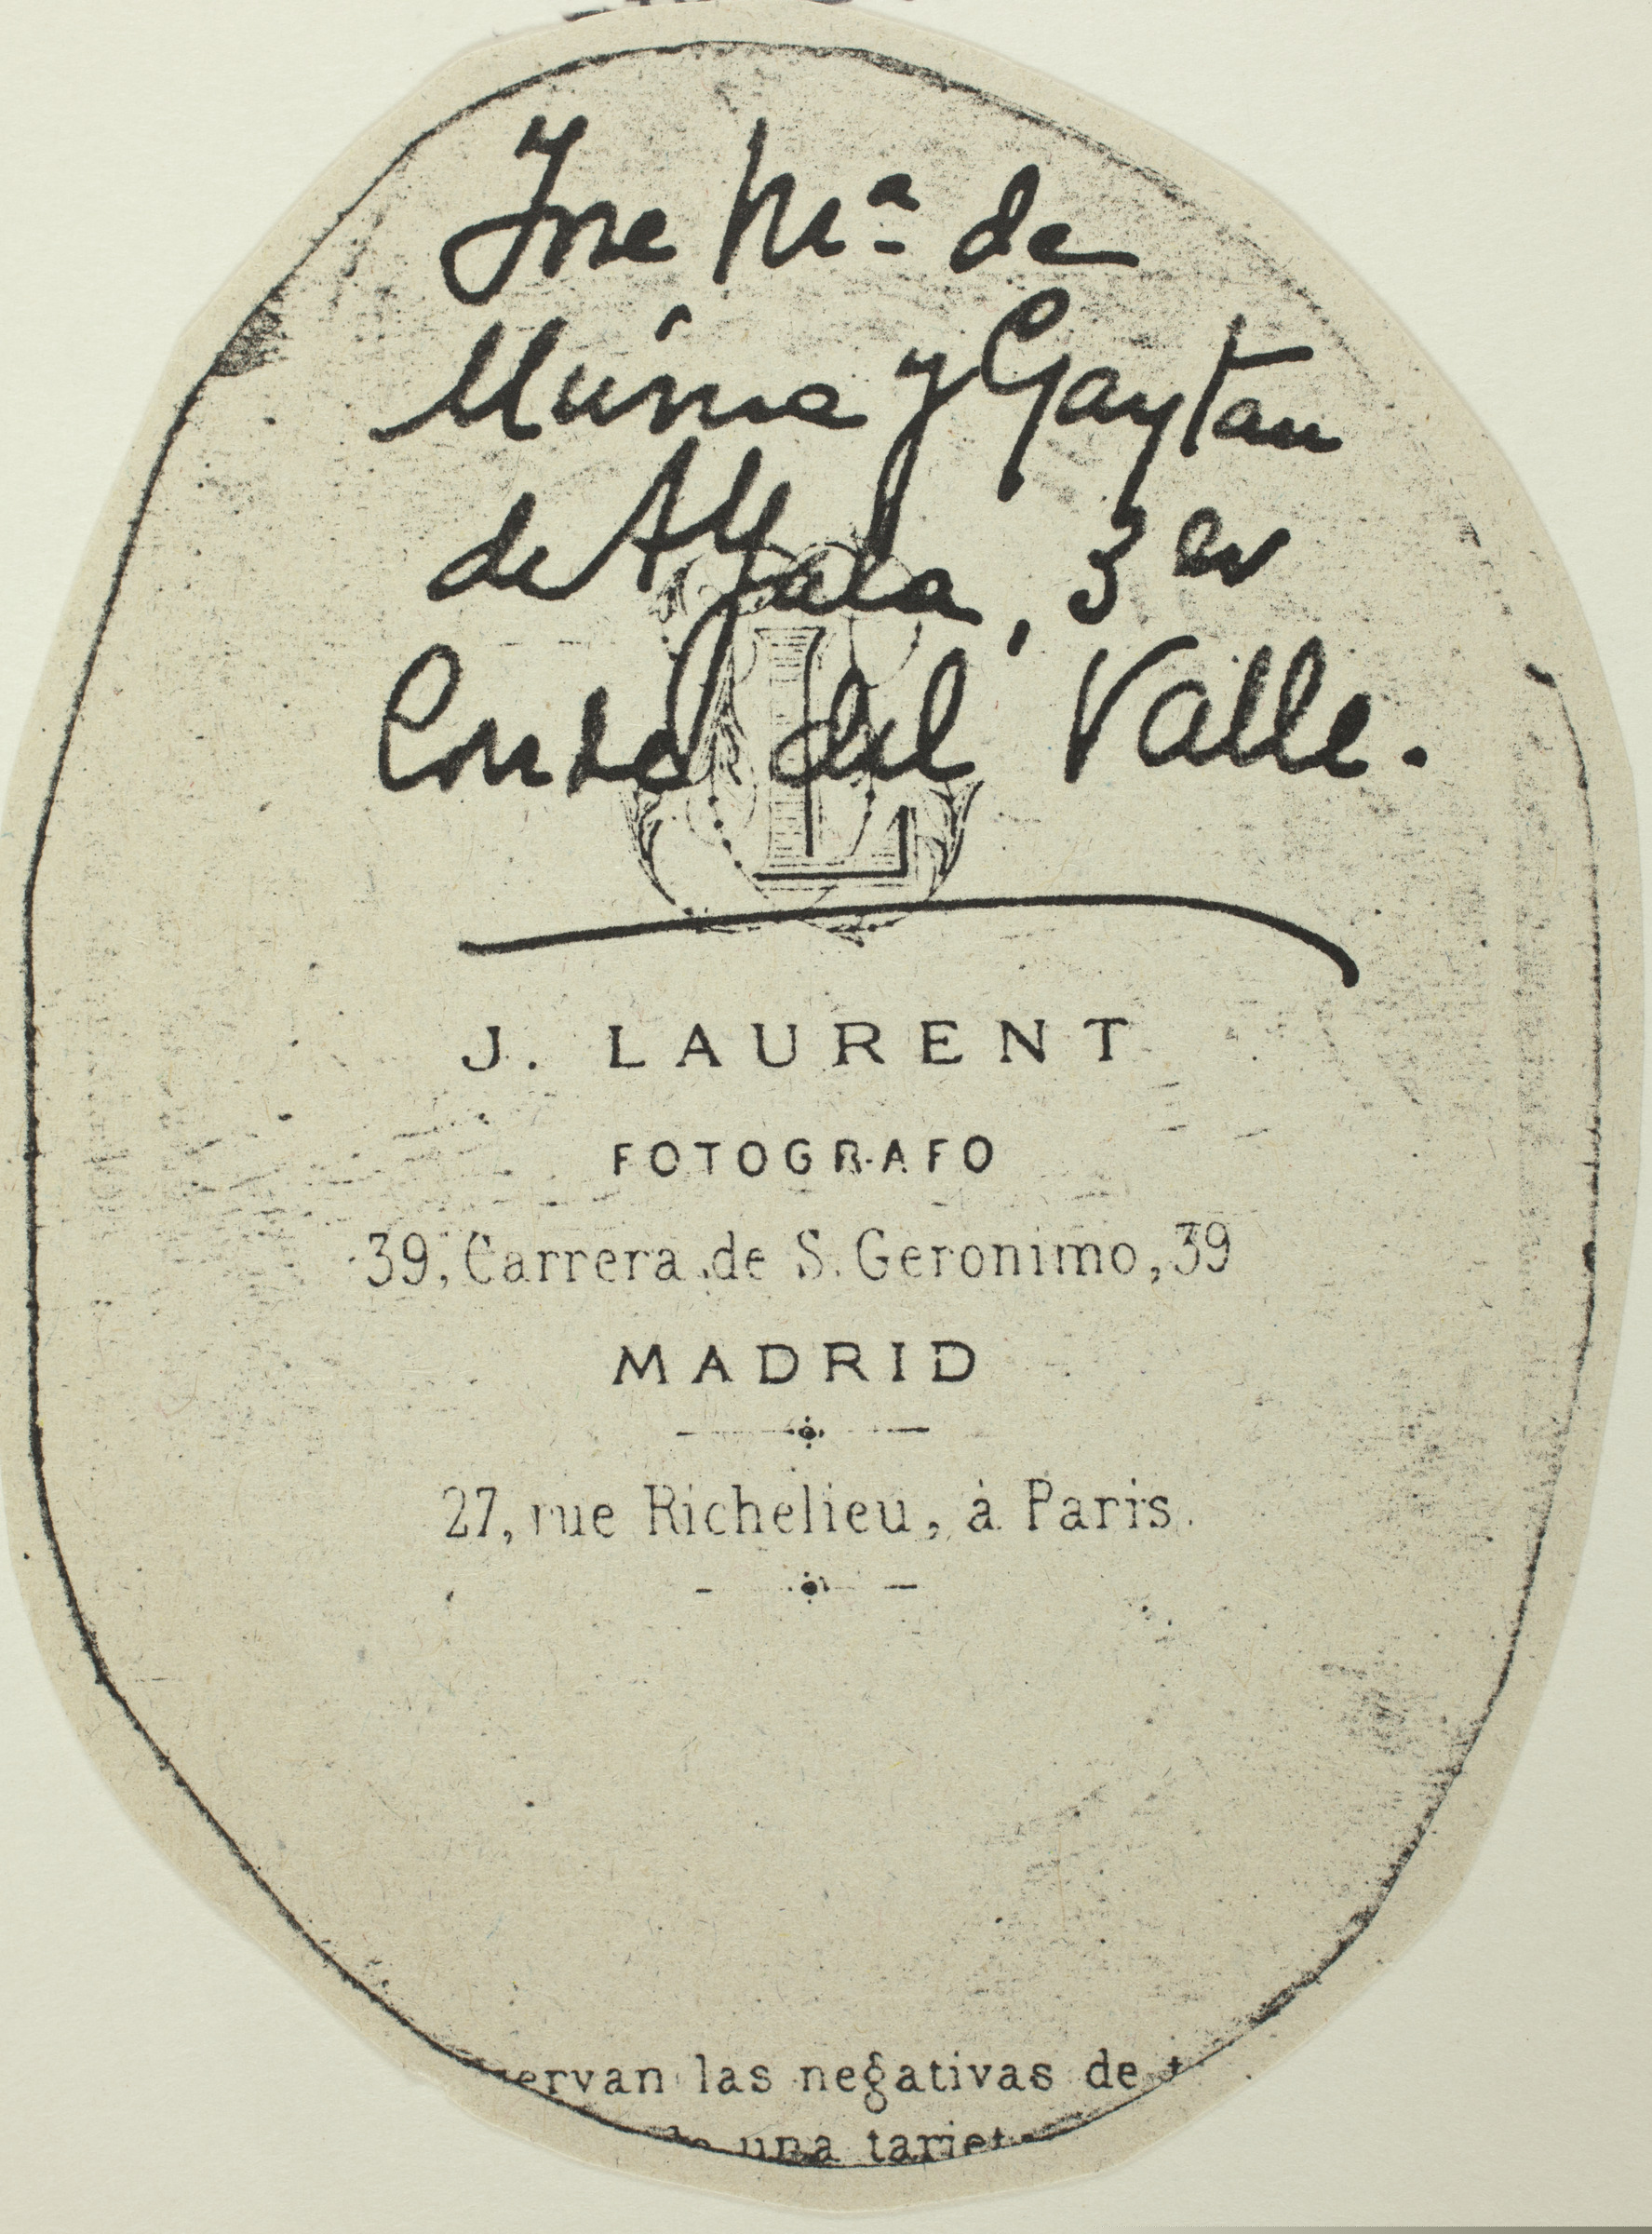 Jose Mª de
Munive y Gaytan
de Ayala, 3er
Conde del Valle.
L
J. LAURENT
FOTOGRAFO
39, Carrera de S. Geronimo, 39
MADRID
27, rue Richelieu, à Paris.
ervan las negativas de t
una tarjet